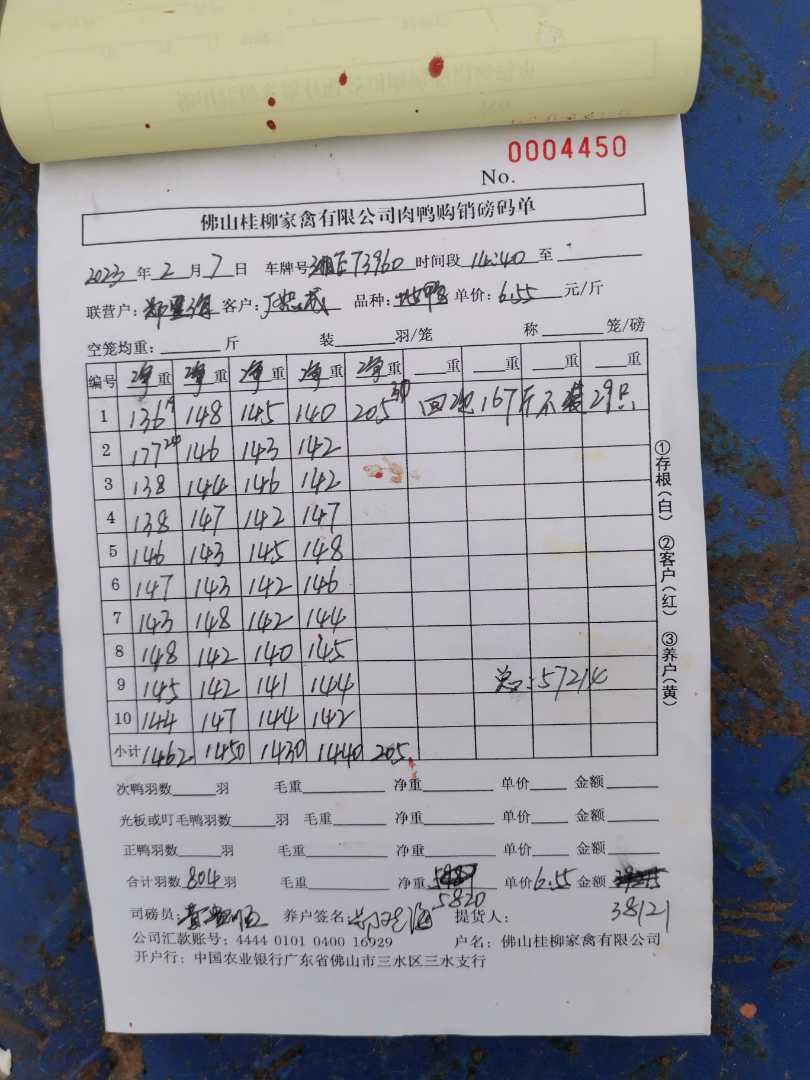 0004450
No.
佛山桂柳家禽有限公司肉鸭购销磅码单
2023年2月7日 车牌号 73960 时间段 14:40 至
联营户: 客户: 品种: 单价:6.55元/斤
空笼均重: 斤 装 羽/笼 称 笼/磅
编号 净重 净重 净重 净重 净重 重 重 重
1 136 148 145 140 205 回 167斤不装29只
2 177 146 143 142
3 138 144 146 142
4 138 147 142 147
5 146 143 145 148
6 147 143 142 146
7 143 148 142 144
8 148 142 140 145
9 145 142 141 144 总:5721斤
10 144 147 144 142
小计 1462 1450 1430 1440 205
①存根(白) ②客户(红) ③养户(黄)
次鸭羽数 羽 毛重 净重 单价 金额
光板或叮毛鸭羽数 羽 毛重 净重 单价 金额
正鸭羽数 羽 毛重 净重 单价 金额
合计羽数804羽 毛重 净重 单价6.55 金额
5820 38121
司磅员: 养户签名: 提货人:
公司汇款账号:4444 0101 0400 16929 户名:佛山桂柳家禽有限公司
开户行:中国农业银行广东省佛山市三水区三水支行